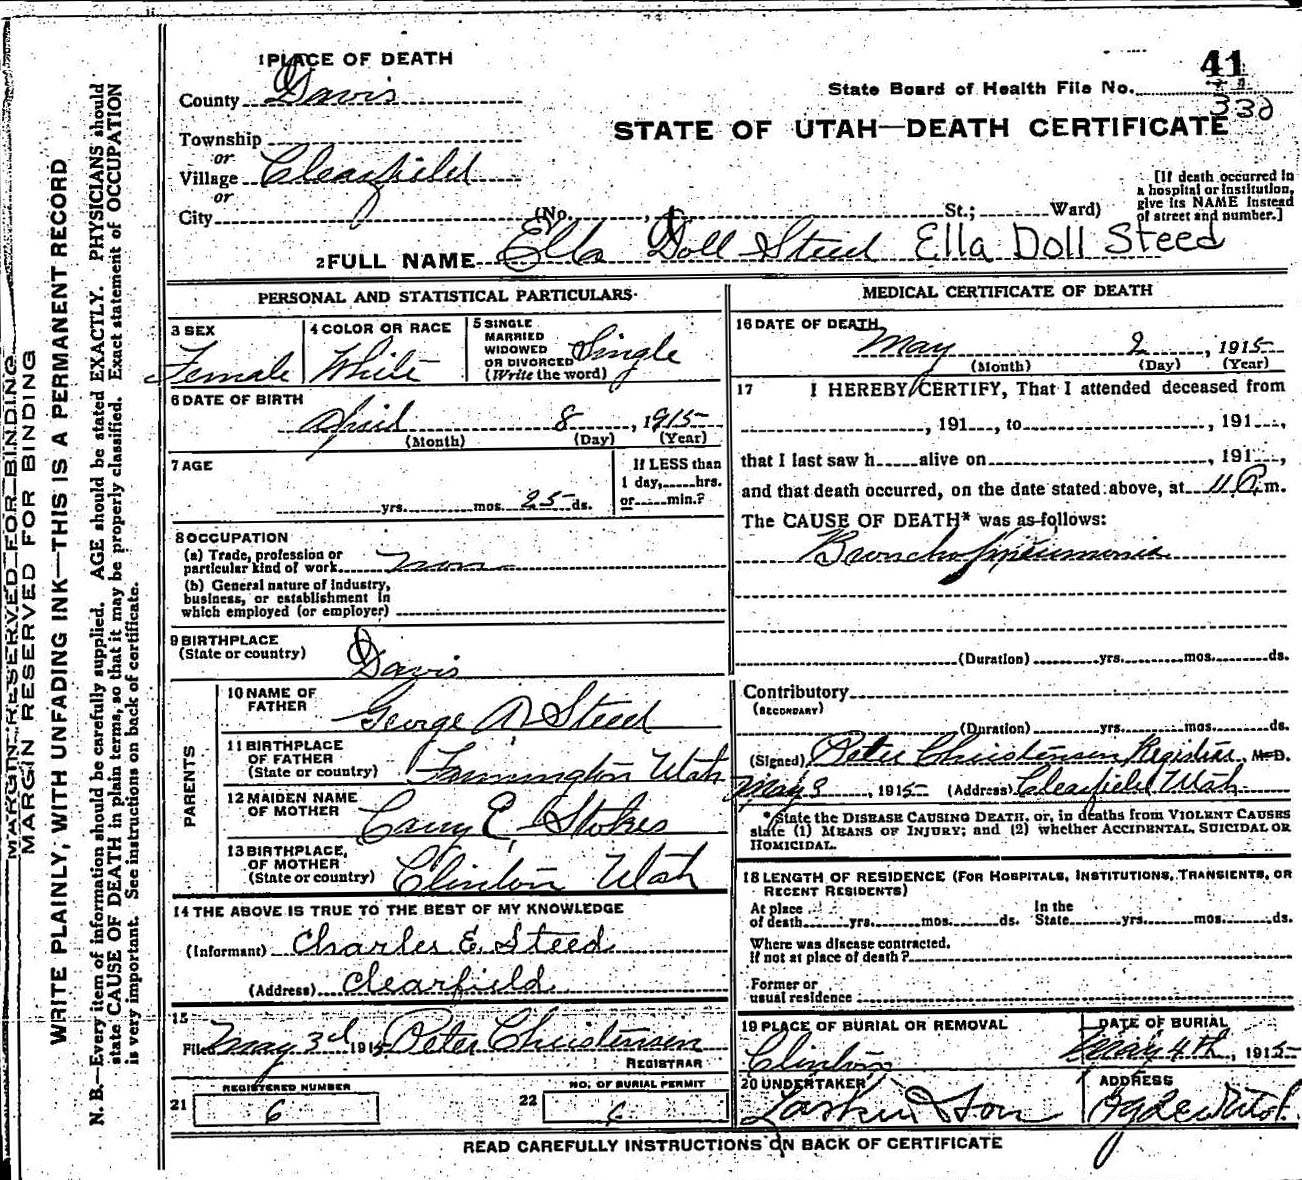 MARGIN RESERVED FOR BINDING
MARGIN RESERVED FOR BINDING
WRITE PLAINLY, WITH UNFADING INK—THIS IS A PERMANENT RECORD
N. B.—Every item of information should be carefully supplied. AGE should be stated EXACTLY. PHYSICIANS should
state CAUSE OF DEATH in plain terms, so that it may be properly classified. Exact statement of OCCUPATION
is very important. See instructions on back of certificate.
1 PLACE OF DEATH
County Davis
Township
or
Village Clearfield
or
City (No. , St.; Ward)
State Board of Health File No. 41
330
STATE OF UTAH—DEATH CERTIFICATE
[If death occurred in
a hospital or institution,
give its NAME instead
of street and number.]
2 FULL NAME Ella Doll Steed Ella Doll Steed
PERSONAL AND STATISTICAL PARTICULARS
3 SEX
Female
4 COLOR OR RACE
White
5 SINGLE
MARRIED
WIDOWED
OR DIVORCED
(Write the word)
Single
6 DATE OF BIRTH
April 8, 1915
(Month) (Day) (Year)
7 AGE
yrs. mos. 25 ds.
If LESS than
1 day, hrs.
or min.?
8 OCCUPATION
(a) Trade, profession or
particular kind of work
(b) General nature of industry,
business, or establishment in
which employed (or employer)
9 BIRTHPLACE
(State or country)
Davis
PARENTS
10 NAME OF
FATHER
George A Steed
11 BIRTHPLACE
OF FATHER
(State or country)
Farmington Utah
12 MAIDEN NAME
OF MOTHER
E Stokes
13 BIRTHPLACE
OF MOTHER
(State or country)
Clinton Utah
14 THE ABOVE IS TRUE TO THE BEST OF MY KNOWLEDGE
(Informant) Charles E. Steed
(Address) Clearfield
15
Filed May 3d 1915 Peter Christensen
REGISTRAR
REGISTERED NUMBER
21 6
NO. OF BURIAL PERMIT
22 6
MEDICAL CERTIFICATE OF DEATH
16 DATE OF DEATH
May 2, 1915
(Month) (Day) (Year)
17 I HEREBY CERTIFY, That I attended deceased from
, 191 , to , 191 ,
that I last saw h alive on , 191 ,
and that death occurred, on the date stated above, at 11 P. m.
The CAUSE OF DEATH* was as follows:
Broncho pneumonia
(Duration) yrs. mos. ds.
Contributory
(SECONDARY)
(Duration) yrs. mos. ds.
(Signed) Peter Christensen Registrar, M. D.
May 3, 1915 (Address) Clearfield Utah
*State the DISEASE CAUSING DEATH, or, in deaths from VIOLENT CAUSES
state (1) MEANS OF INJURY; and (2) whether ACCIDENTAL, SUICIDAL OR
HOMICIDAL.
18 LENGTH OF RESIDENCE (FOR HOSPITALS, INSTITUTIONS, TRANSIENTS, OR
RECENT RESIDENTS)
At place
of death yrs. mos. ds.
In the
State yrs. mos. ds.
Where was disease contracted,
if not at place of death?
Former or
usual residence
19 PLACE OF BURIAL OR REMOVAL
Clinton
DATE OF BURIAL
May 4th, 1915
20 UNDERTAKER
Larkin & Son
ADDRESS
READ CAREFULLY INSTRUCTIONS ON BACK OF CERTIFICATE